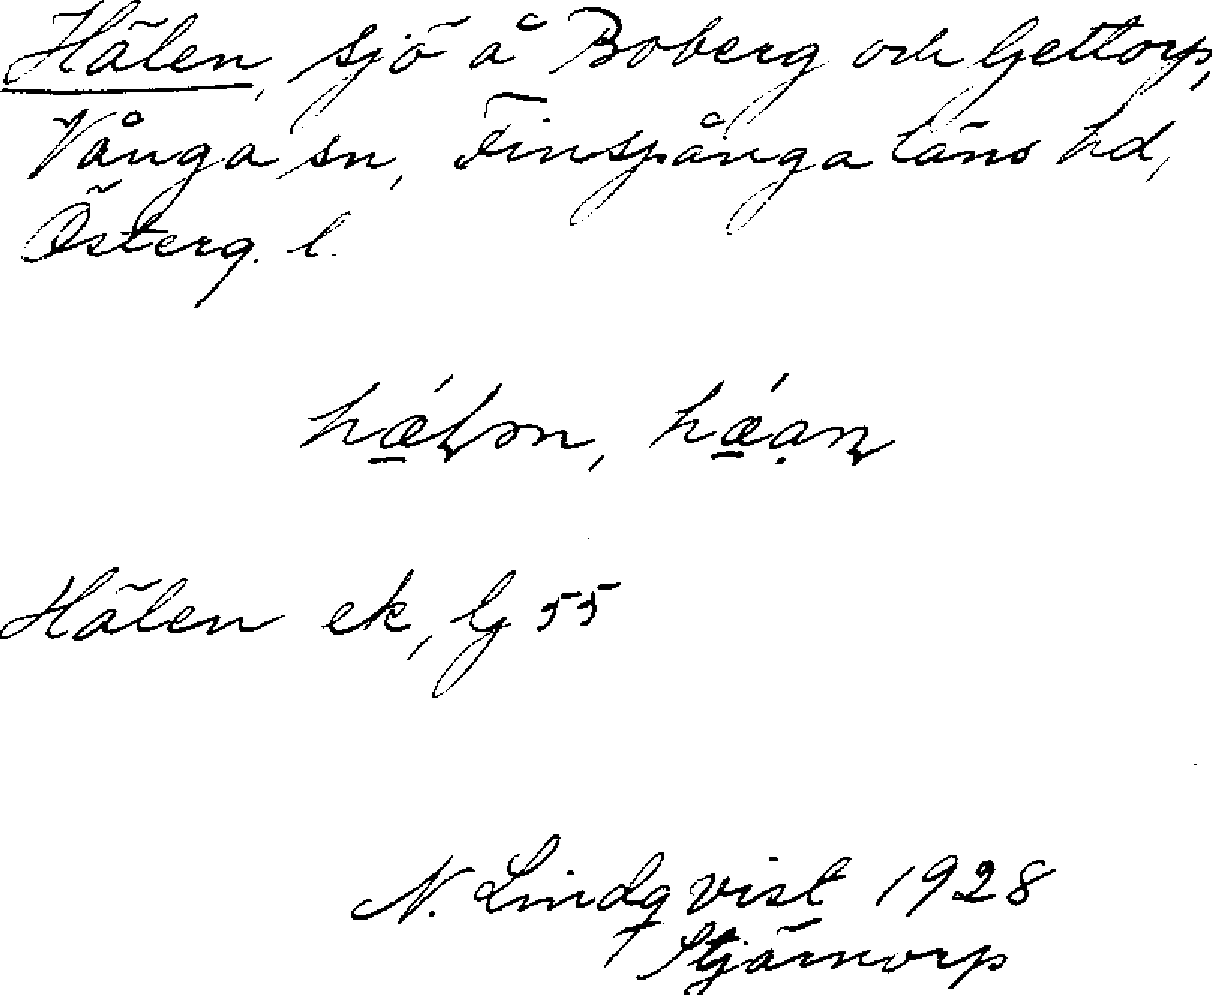 Hälen, sjö å Boberg och Gettorp,
Vånga sn, Finspånga läns hd,
Österg. l.
Hälen ek, G 55
N. Lindqvist 1928
Stjärnorp